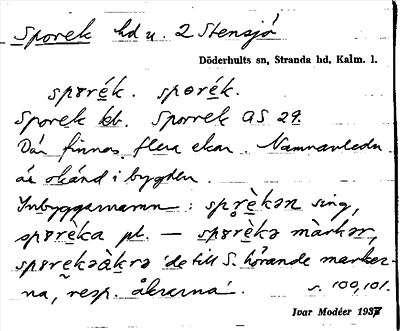 Sporek hd u. 2 Stensjö
Döderhults sn, Stranda hd, Kalm. l.
spɵrék. spɵrék.
Sporek kb. Sporrek GS 29.
Där finnes flera ekar. Namnanledn
är okänd i bygden.
Inbyggarnamn: sprèkən sing,
spɵrèka pl. — spɵrèkə màrkər,
spɵrekəàkrə 'de till S. hörande marker-
na, resp. åkrarna'. s. 100, 101.
Ivar Modéer 1937